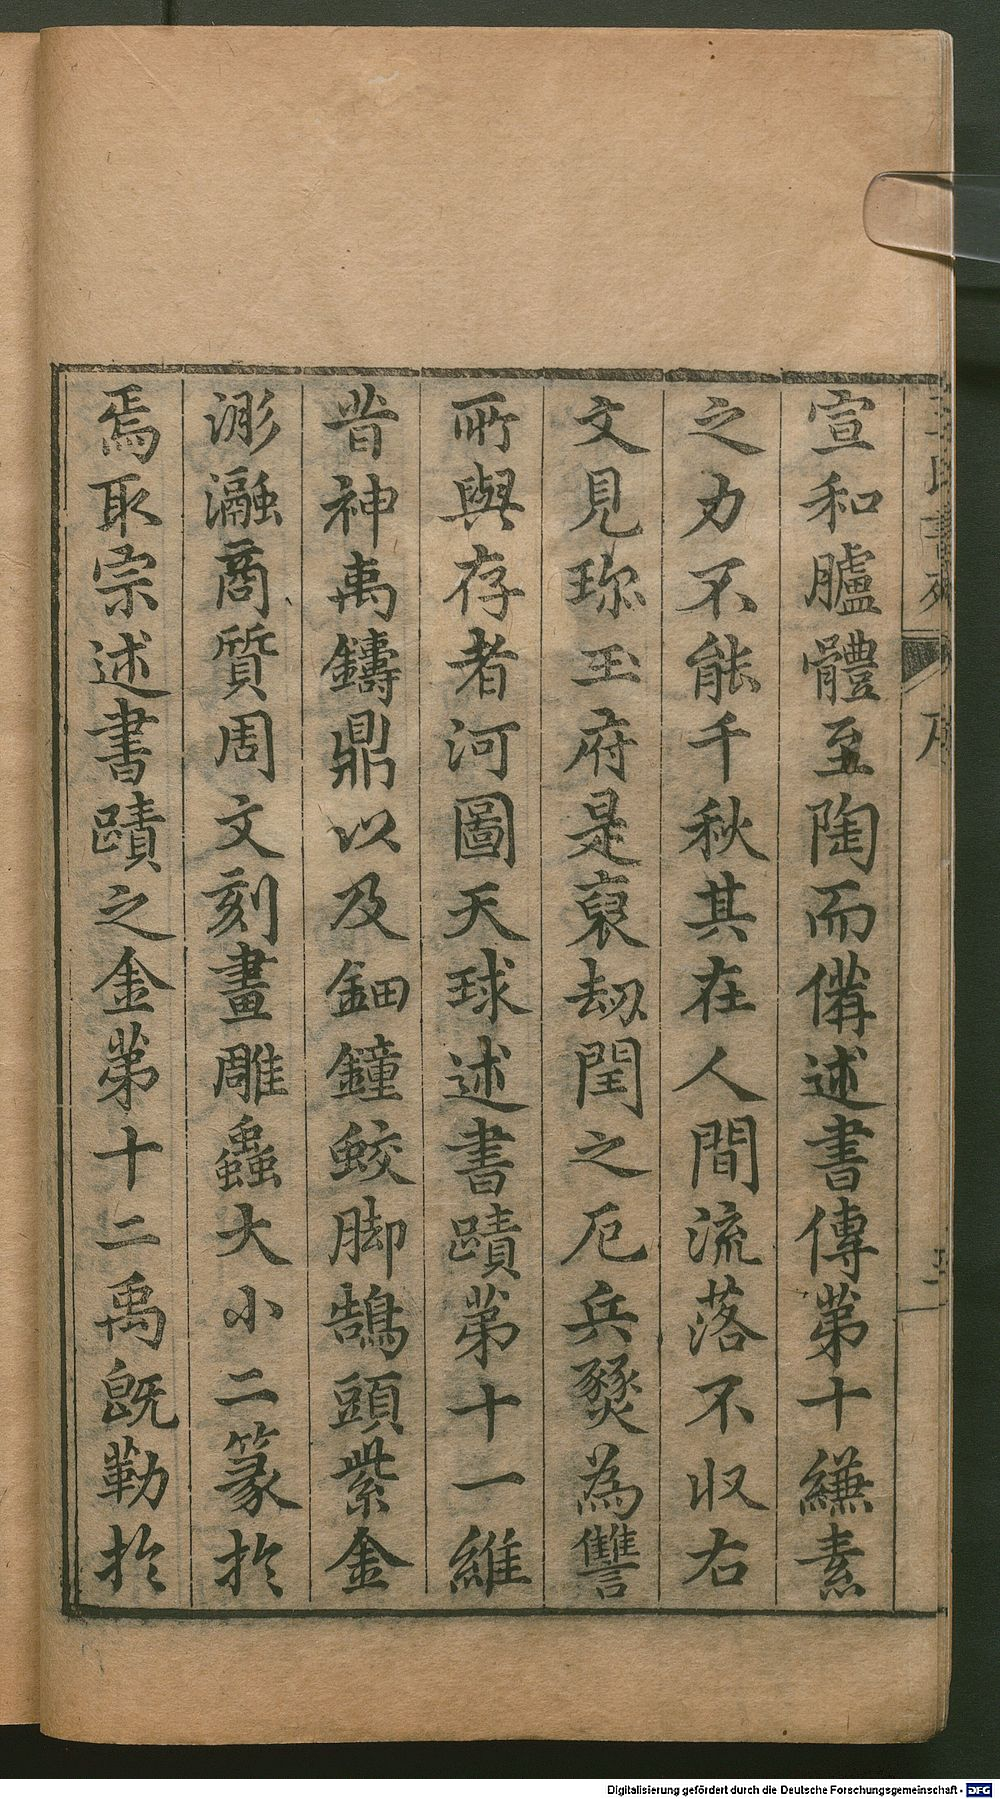 宣和臚體至陶而備述書傳第十縑素
之力不能千秋其在人間流落不収右
文見珎玉府是裒劫閏之厄兵燹為讐
所與存者河圖天球述書蹟第十一維
昔神禹鑄鼎以及鈿鐘蛟脚鵠頭紫金
浵瀜商質周文刻畫雕蟲大小二篆於
焉取宗述書蹟之金第十二禹旣勒於
Digitalisierung gefördert durch die Deutsche Forschungsgemeinschaft - DFG